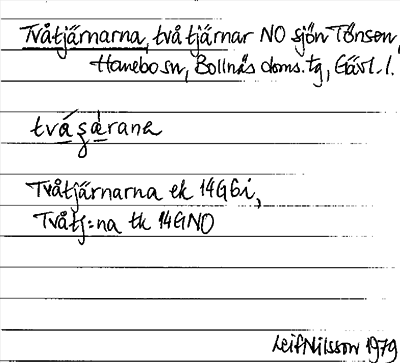 Tvåtjärnarna, två tjärnar NO sjön Tönsen,
Hanebo sn, Bollnäs doms. tg, Gävl. l.
Tvåtjärnarna ek 14G6i,
Tvåtj:na tk 14GNO
Leif Nilsson 1979